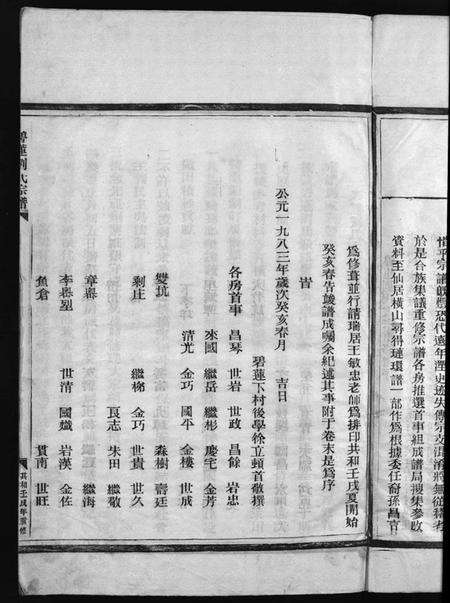 於是合族集議重修宗譜各房推選首事組成譜局搜集參攷
資料至仙居橫山尋得璉環譜一部作爲根據委任裔孫昌官
爲修葺並行請瑞居王敏忠老師爲排印共和壬戌夏開始
癸亥春告竣譜成囑余紀述其事附于卷末是爲序
旹
公元一九八三年歲次癸亥春月 吉日
碧蓮下村後學徐立頫首敬撰
各房首事 昌琴 世岩 世政 昌餘 岩忠
來國 繼岳 繼彬 慶宅 金芳
清光 金巧 國平 金樓 世成
雙坑 森樹 壽廷
剩庄 繼梯 金巧 世貴 世久
良志 朱田 繼敬
章㟧 繼海
世清 國熾 岩漢 金佐
魚倉 貫南 世旺
劉氏宗譜
共和壬戌年重修